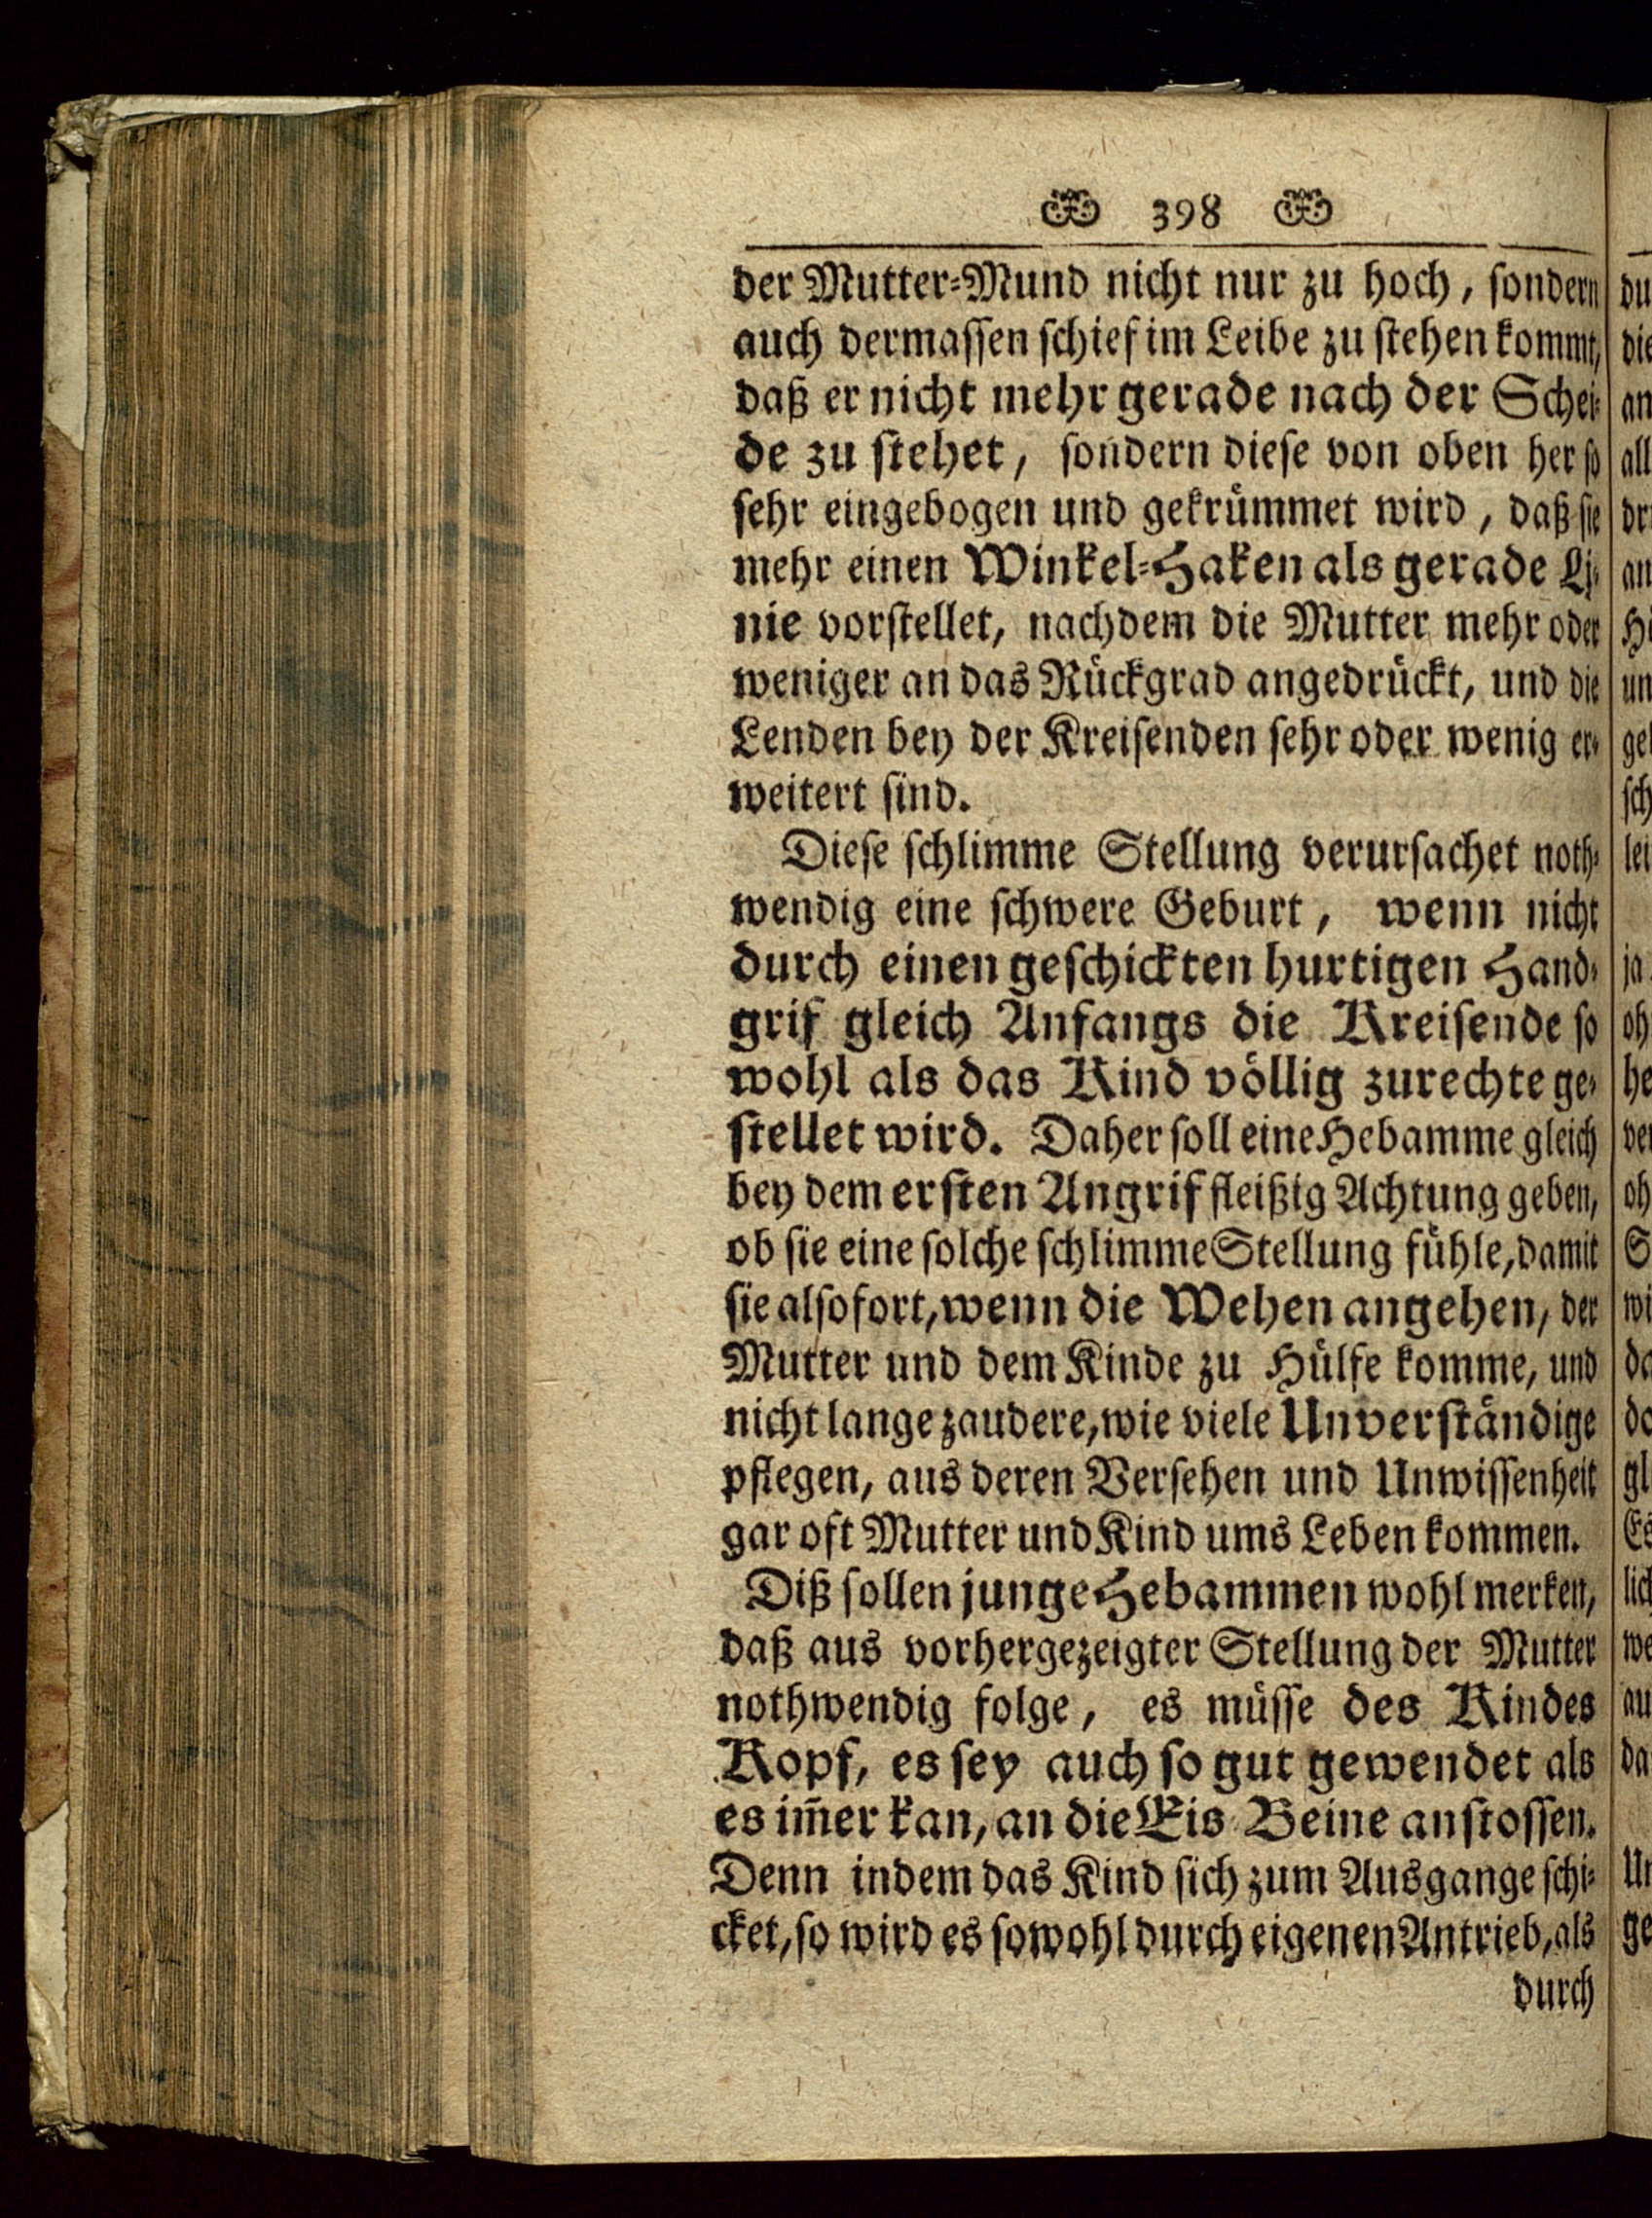 398
der Mutter-Mund nicht nur zu hoch, sondern
auch dermassen schief im Leibe zu stehen kommt,
daß er nicht mehr gerade nach der Schei-
de zu stehet, sondern diese von oben her so
sehr eingebogen und gekrümmet wird, daß sie
mehr einen Winkel-Haken als gerade Li-
nie vorstellet, nachdem die Mutter mehr oder
weniger an das Rückgrad angedrückt, und die
Lenden bey der Kreisenden sehr oder wenig er-
weitert sind.
Diese schlimme Stellung verursachet noth-
wendig eine schwere Geburt, wenn nicht
durch einen geschickten hurtigen Hand-
grif gleich Anfangs die Kreisende so
wohl als das Kind völlig zurechte ge-
stellet wird. Daher soll eine Hebamme gleich
bey dem ersten Angrif fleißig Achtung geben,
ob sie eine solche schlimme Stellung fühle, damit
sie alsofort, wenn die Wehen angehen, der
Mutter und dem Kinde zu Hülfe komme, und
nicht lange zaudere, wie viele Unverständige
pflegen, aus deren Versehen und Unwissenheit
gar oft Mutter und Kind ums Leben kommen.
Diß sollen junge Hebammen wohl merken,
daß aus vorhergezeigter Stellung der Mutter
nothwendig folge, es müsse des Kindes
Kopf, es sey auch so gut gewendet als
es im̃er kan, an die Eis Beine anstossen.
Denn indem das Kind sich zum Ausgange schi-
cket, so wird es sowohl durch eigenen Antrieb, als
durch